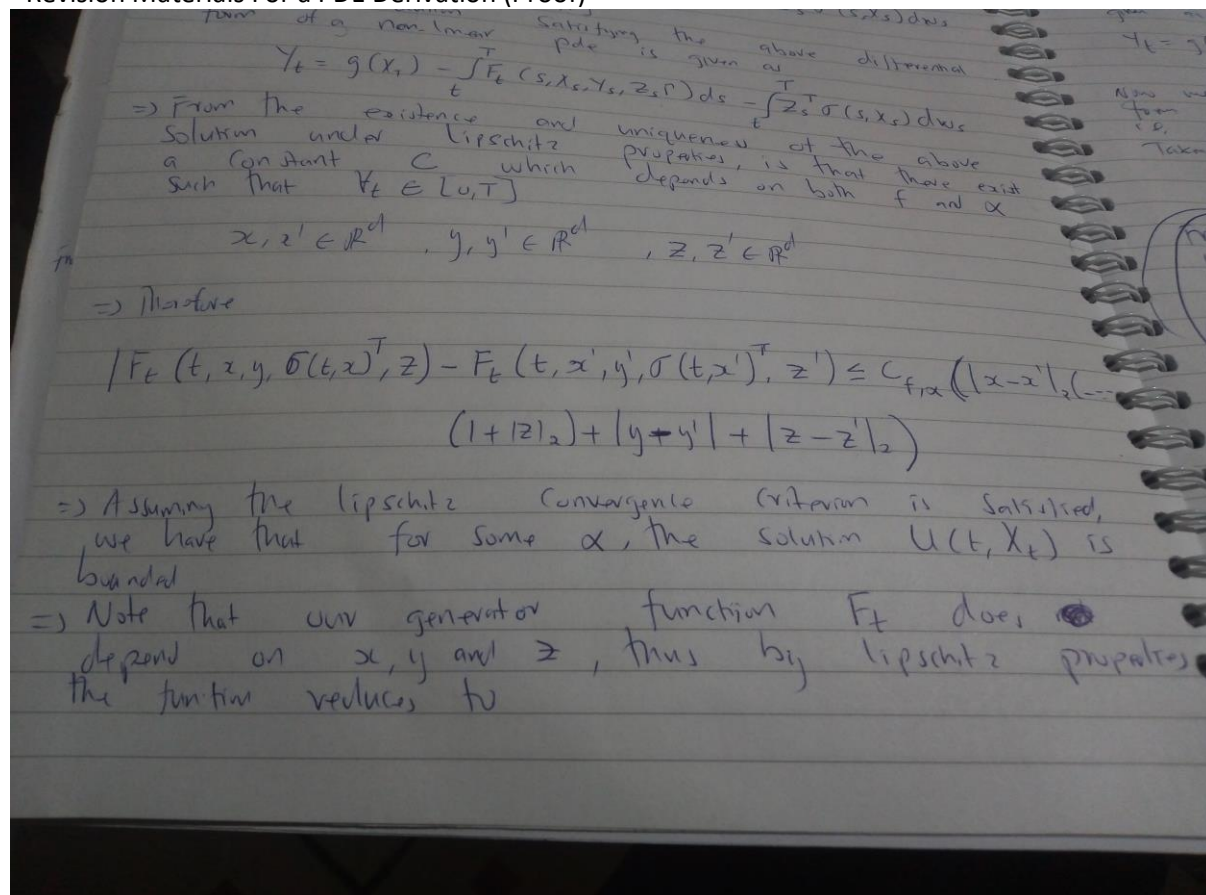 Revision Materials For a PDE Derivation (Proof)
form of a non-linear satisfying the above differential
pde is given as
Y_t = g(X_T) - ∫_t^T F_t (s, X_s, Y_s, Z_s, Γ) ds - ∫_t^T Z_s^T σ(s, X_s) dW_s
=> From the existence and uniqueness of the above
solution under lipschitz properties, is that there exist
a constant C which depends on both f and α
such that ∀t ∈ [0,T]
x, x' ∈ ℝ^d , y, y' ∈ ℝ^d , z, z' ∈ ℝ^d
=> Therefore
|F_t (t, x, y, σ(t,x)^T, z) - F_t (t, x', y', σ(t,x')^T, z') ≤ C_{f,α} (|x-x'|_2 (...
(1+|z|_2) + |y-y'| + |z-z'|_2)
=> Assuming the lipschitz convergence criterion is satisfied,
we have that for some α, the solution U(t, X_t) is
bounded
=> Note that our generator function F_t does
depend on x, y and z, thus by lipschitz properties
the function reduces to
(s, X_s) dW_s
Y_t = g
Now
form
is,
Taking